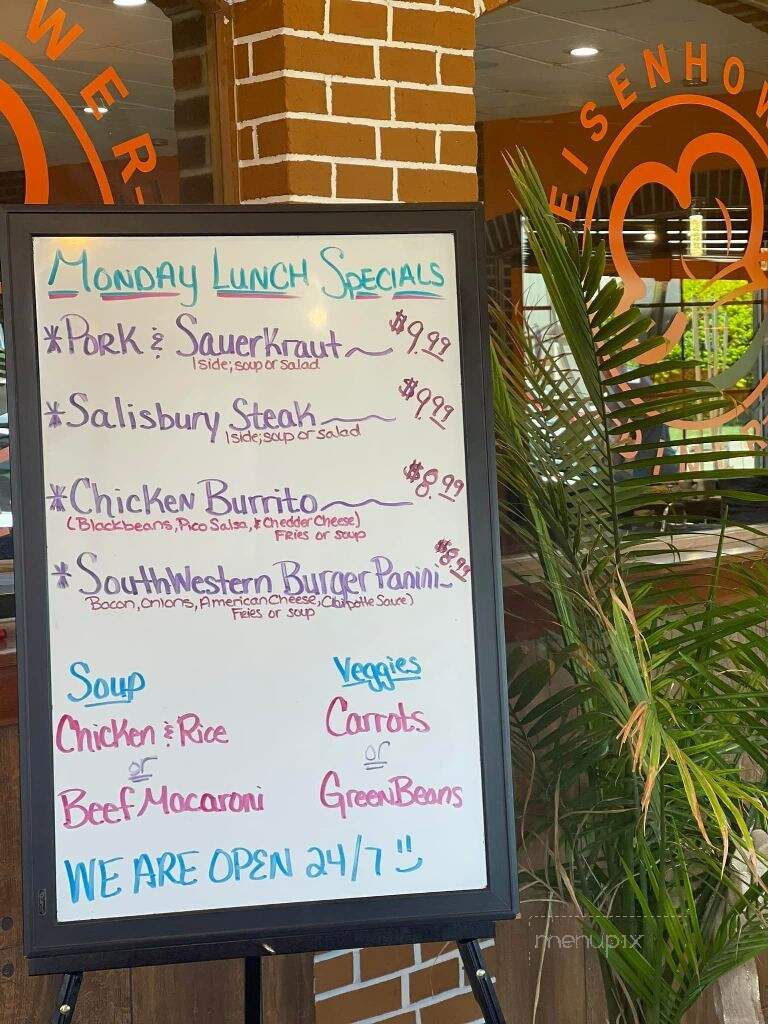 WER-
EISENHOW
MONDAY LUNCH SPECIALS
*PORK & SauerKraut $9.99
1 side; soup or salad
*Salisbury Steak $9.99
1 side; soup or salad
*Chicken Burrito $8.99
(Blackbeans, Pico Salsa, & Chedder Cheese)
Fries or soup
*SouthWestern Burger Panini $8.99
Bacon, Onions, American Cheese, Chipotle Sauce)
Fries or soup
Soup Veggies
Chicken & Rice Carrots
or or
Beef Macaroni Green Beans
WE ARE OPEN 24/7
menupix